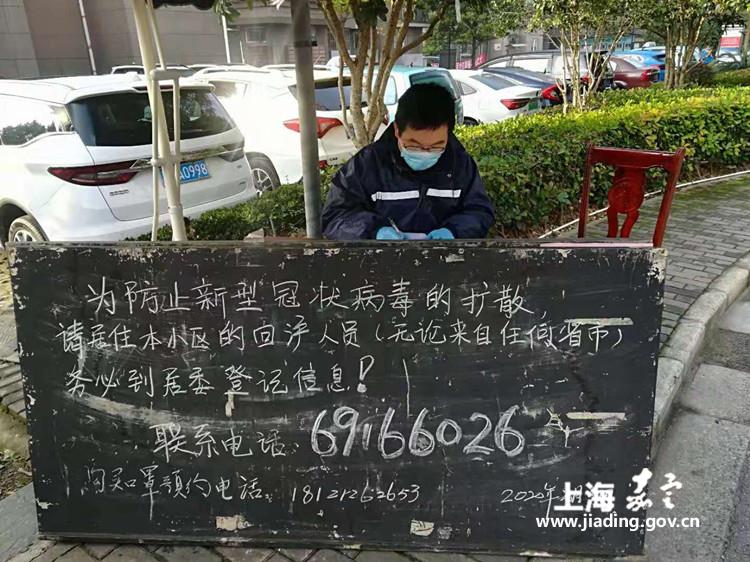 A0998
为防止新型冠状病毒的扩散
请居住本小区的回沪人员(无论来自任何省市)
务必到居委登记信息!
联系电话 69166026
购买口罩预约电话 18121262653 2020年
上海嘉定
www.jiading.gov.cn